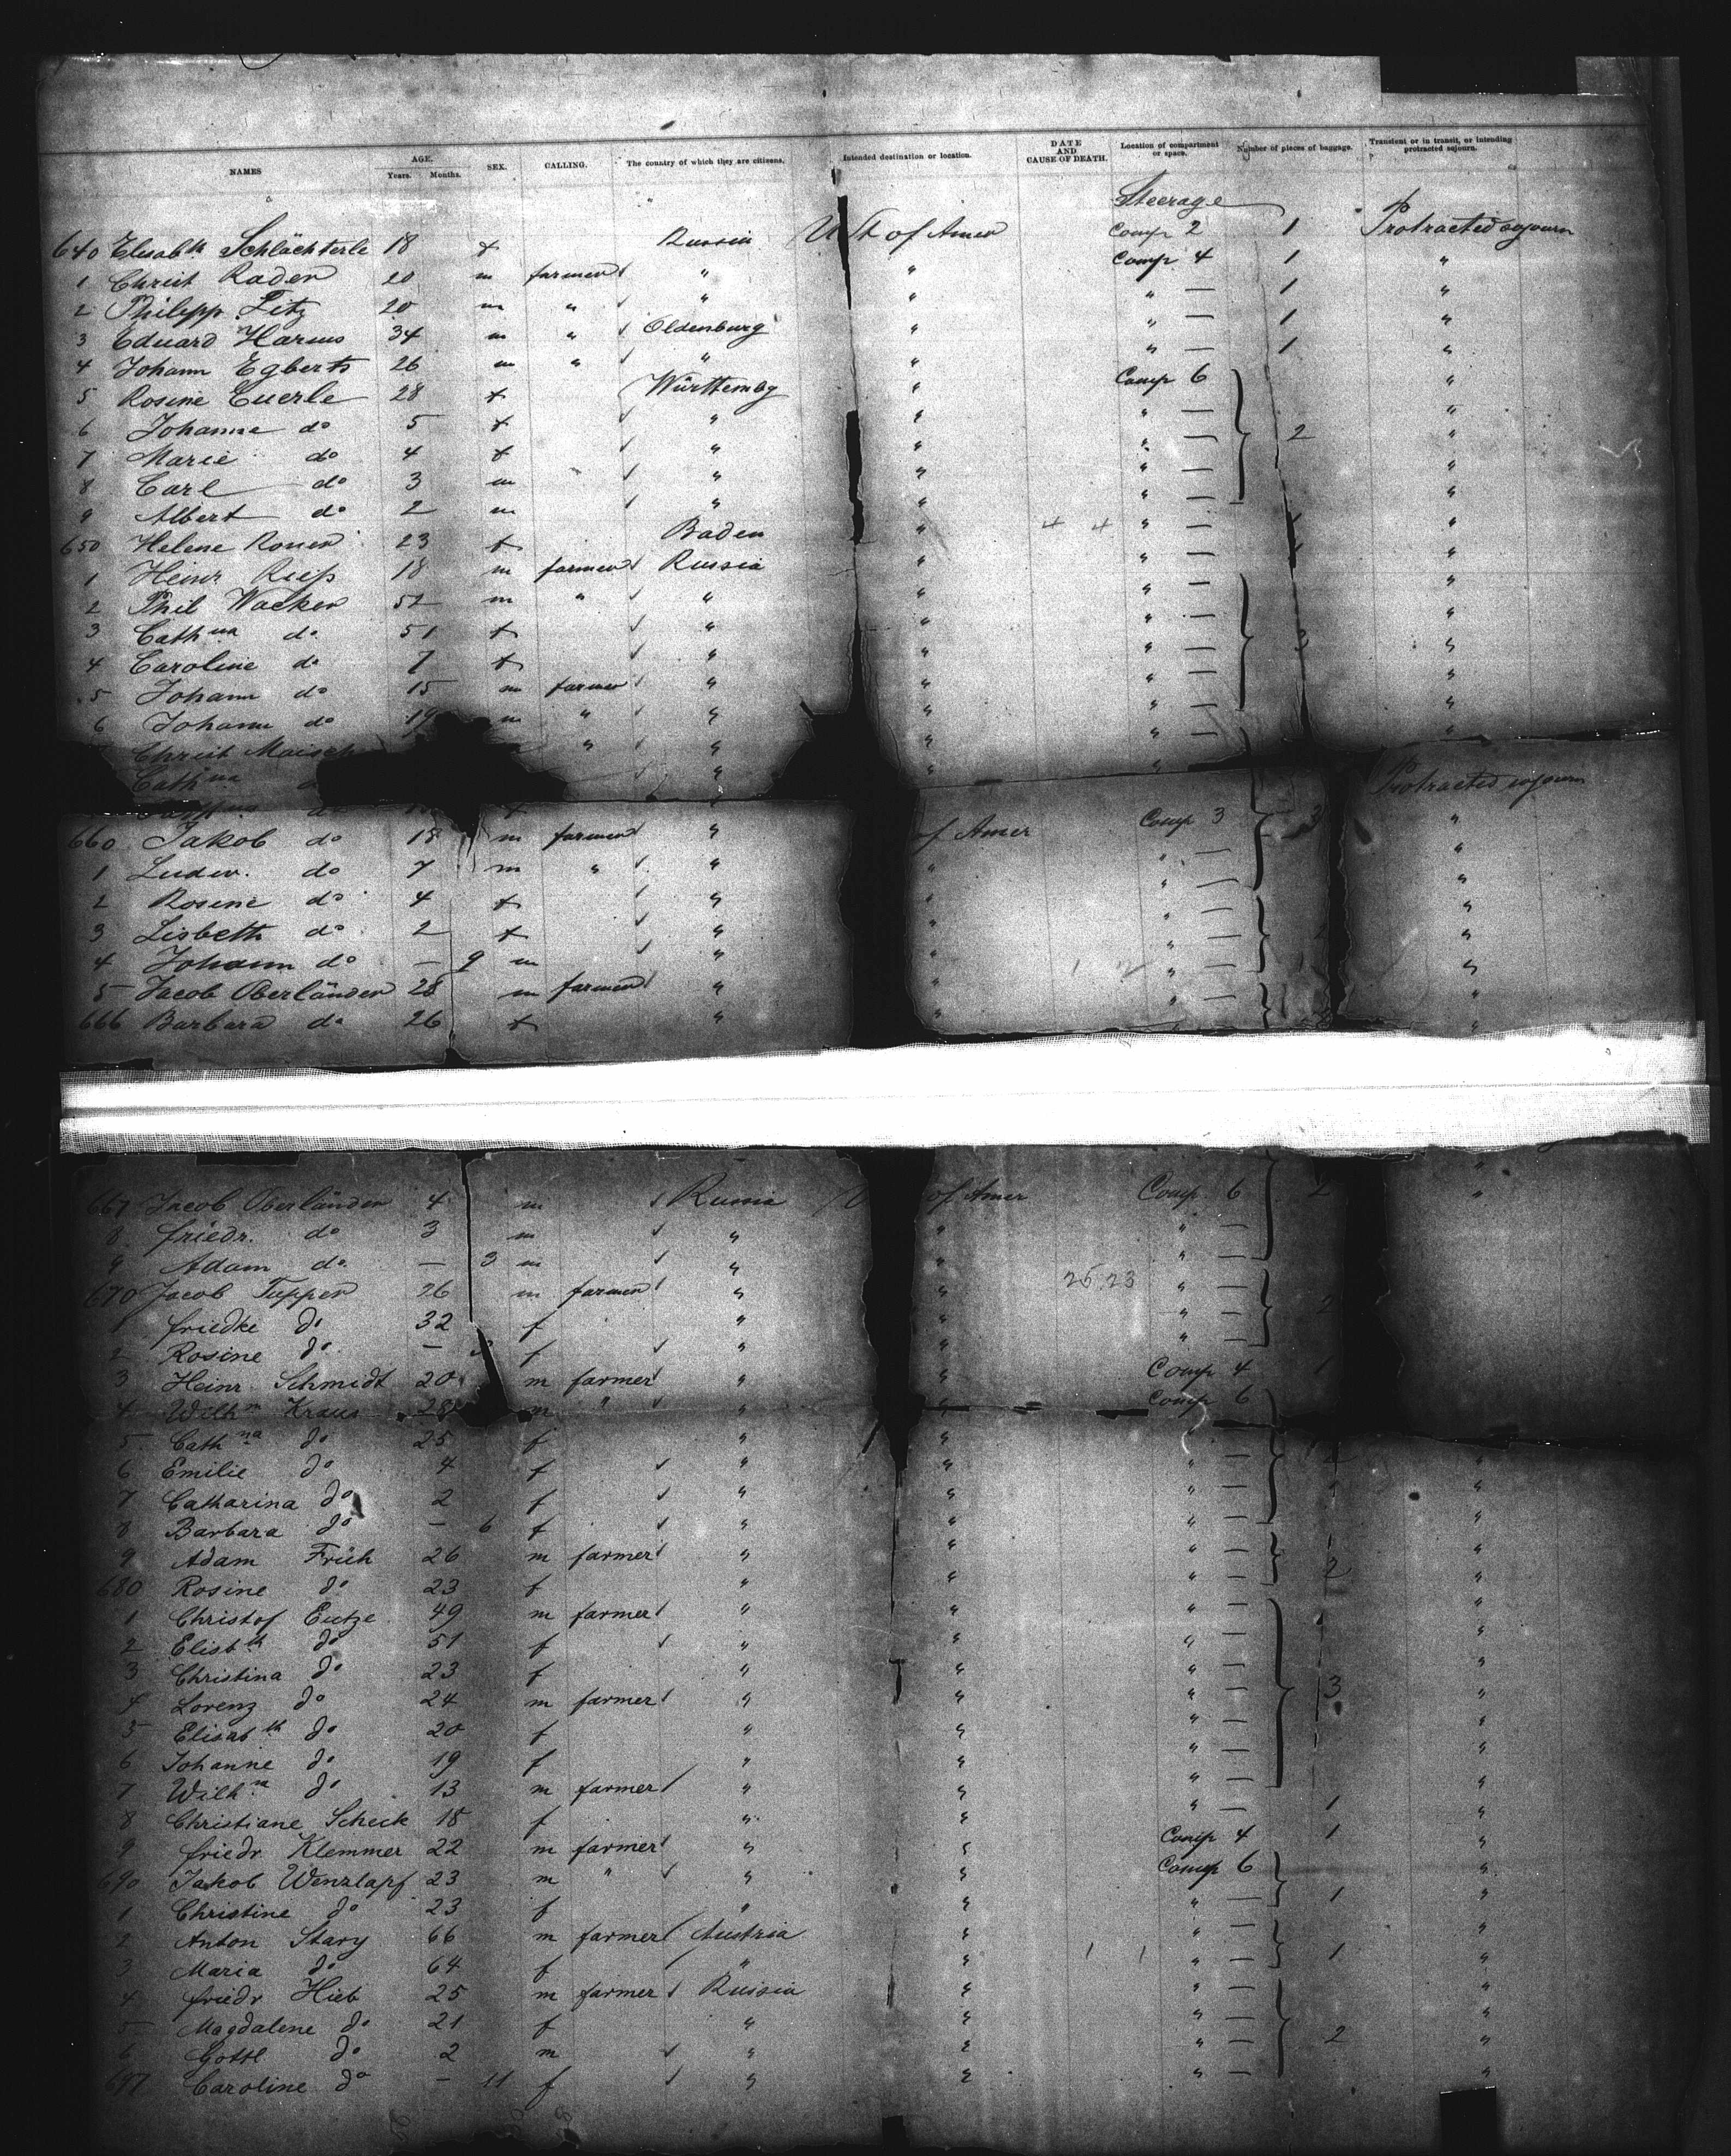 NAMES AGE. Years. Months. SEX. CALLING. The country of which they are citizens. Intended destination or location. DATE AND CAUSE OF DEATH. Location of compartment or space. Number of pieces of baggage. Transient or in transit, or intending protracted sojourn.
Steerage
640 Elisabth Schlächterle 18 f Russia U St of Amer Comp 2 1 Protracted sojourn
1 Christ Rader 20 m farmer " " Comp 4 1 "
2 Philipp Fitz 20 m " " " " — 1 "
3 Eduard Harms 34 m " Oldenburg " " — 1 "
4 Johann Egberts 26 m " " " " — 1 "
5 Rosine Euerle 28 f Württembg " Comp 6 "
6 Johanne do 5 f " " " — 2 "
7 Marie do 4 f " " " — "
8 Carl do 3 m " " " — "
9 Albert do 2 m " " " — "
650 Helene 23 f Baden " 4 4 " — "
1 Heinr 18 m farmer Russia " " — "
2 Phil Wacker 52 m " " " " — "
3 Cathna do 51 f " " " — 3 "
4 Caroline do 7 f " " " — "
5 Johann do 15 m farmer " " " — "
6 Johann do 19 m " " " " — "
Christ Maisch " " " "
Cathna " Protracted sojourn
do f "
660 Jakob do 18 m farmer " of Amer Comp 3 3 "
1 Ludw. do 7 m " " " " — "
2 Rosine do 4 f " " " — "
3 Lisbeth do 2 f " " " — "
4 Johann do — 9 m " " " — "
5 Jacob Oberländer 28 m farmer " " " — "
666 Barbara do 26 f " " " — "
667 Jacob Oberländer 4 m Russia U of Amer Comp 6 2 "
8 friedr. do 3 m " " " —
9 Adam do — 3 m " " " —
670 Jacob Tupper 26 m farmer " " 25 23 " —
1 friedke do 32 f " " " — 2
2 Rosine do — f " " " —
3 Heinr Schmidt 20 m farmer " " Comp 4 1
4 Wilhm Kraus 28 m " " " Comp 6
5 Cathna do 25 f " " " — 2 "
6 Emilie do 4 f " " " — "
7 Catharina do 2 f " " " — "
8 Barbara do — 6 f " " " — "
9 Adam Früh 26 m farmer " " " — 2 "
680 Rosine do 23 f " " " — "
1 Christof Eutze 49 m farmer " " " — "
2 Elisbth do 51 f " " " — "
3 Christina do 23 f " " " — "
4 Lorenz do 24 m farmer " " " — 3 "
5 Elisabth do 20 f " " " — "
6 Johanne do 19 f " " " — "
7 Wilhm do 13 m farmer " " " — "
8 Christiane Scheck 18 f " " " — 1 "
9 friedr Klemmer 22 m farmer " " Comp 4 1 "
690 Jakob Wenzlapf 23 m " " " Comp 6 "
1 Christine do 23 f " " " — 1 "
2 Anton Stary 66 m farmer Austria " " — "
3 Maria do 64 f " " 1 1 " — 1 "
4 friedr Hieb 25 m farmer Russia " " — "
5 Magdalene do 21 f " " " — "
6 Gottl do 2 m " " " — 2 "
697 Caroline do — 11 f " " " — "